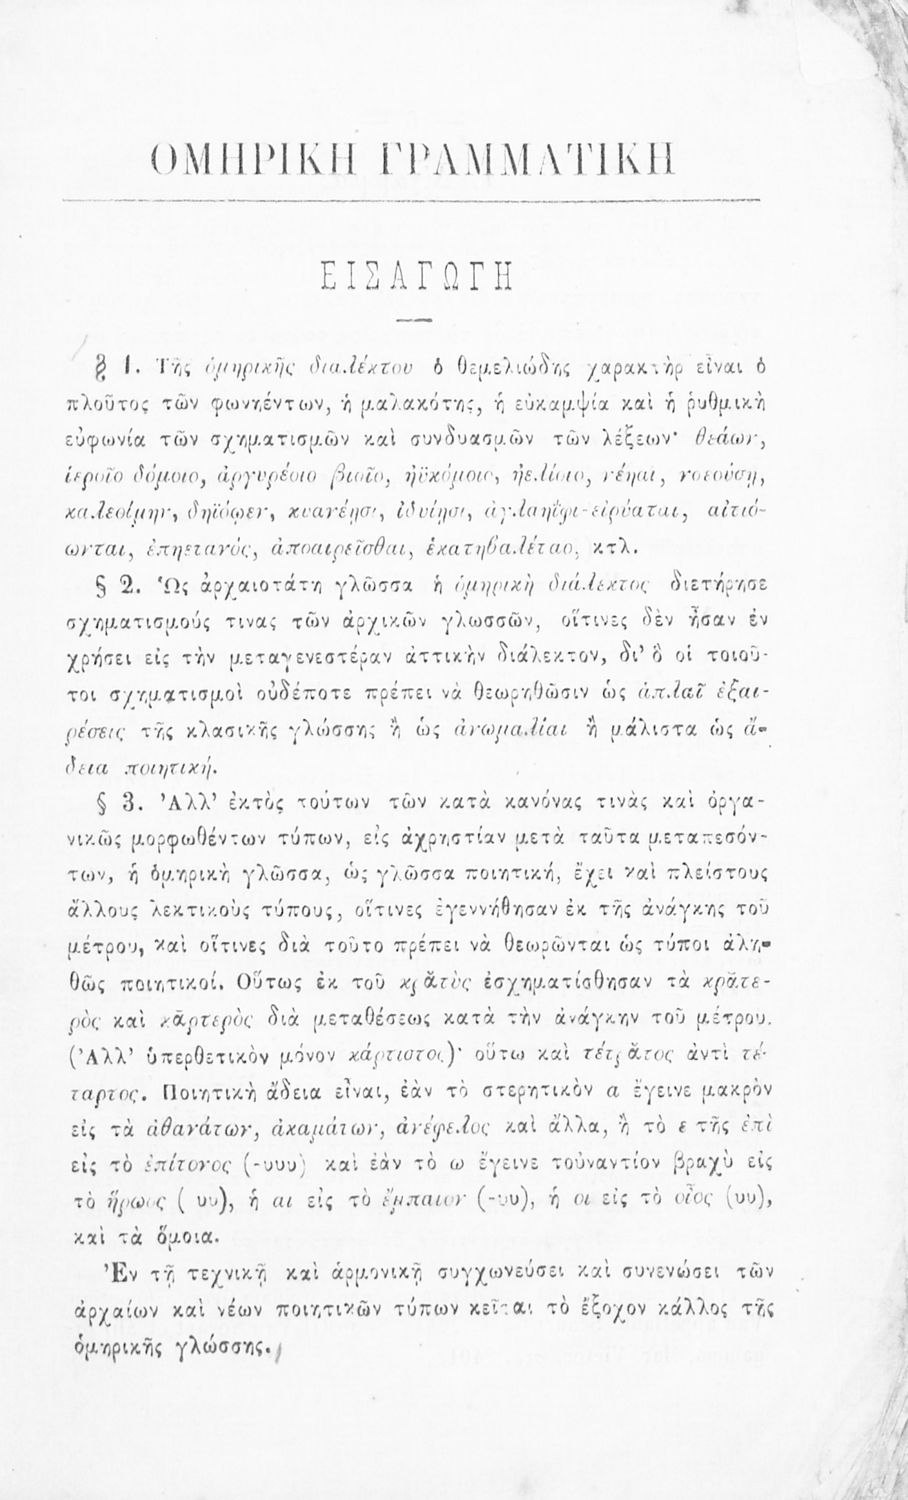 ΟΜΗΡΙΚΗ ΓΡΑΜΜΑΤΙΚΗ
ΕΙΣΑΓΩΓΗ
§ 1. Τῆς ὁμηρικῆς διαλέκτου ὁ θεμελιώδης χαρακτὴρ εἶναι ὁ
πλοῦτος τῶν φωνηέντων, ἡ μαλακότης, ἡ εὐκαμψία καὶ ἡ ῥυθμικὴ
εὐφωνία τῶν σχηματισμῶν καὶ συνδυασμῶν τῶν λέξεων· θεάων,
ἱεροῖο δόμοιο, ἀργυρέοιο βιοῖο, ἠϋκόμοιο, ἠελίοιο, νέηαι, νοεούσῃ,
καλεοίμην, δηϊόῳεν, κυανέῃσι, ἰδυίῃσι, ἀγλαηΐφι-εἰρύαται, αἰτιό-
ωνται, ἐπηετανός, ἀποαιρεῖσθαι, ἑκατηβαλέταο, κτλ.
§ 2. Ὡς ἀρχαιοτάτη γλῶσσα ἡ ὁμηρικὴ διάλεκτος διετήρησε
σχηματισμούς τινας τῶν ἀρχικῶν γλωσσῶν, οἵτινες δὲν ἦσαν ἐν
χρήσει εἰς τὴν μεταγενεστέραν ἀττικὴν διάλεκτον, δι' ὃ οἱ τοιοῦ-
τοι σχηματισμοὶ οὐδέποτε πρέπει νὰ θεωρηθῶσιν ὡς ἁπλαῖ ἐξαι-
ρέσεις τῆς κλασικῆς γλώσσης ἢ ὡς ἀνωμαλίαι ἢ μάλιστα ὡς ἄ-
δεια ποιητική.
§ 3. Ἀλλ' ἐκτὸς τούτων τῶν κατὰ κανόνας τινὰς καὶ ὀργα-
νικῶς μορφωθέντων τύπων, εἰς ἀχρηστίαν μετὰ ταῦτα μεταπεσόν-
των, ἡ ὁμηρικὴ γλῶσσα, ὡς γλῶσσα ποιητική, ἔχει καὶ πλείστους
ἄλλους λεκτικοὺς τύπους, οἵτινες ἐγεννήθησαν ἐκ τῆς ἀνάγκης τοῦ
μέτρου, καὶ οἵτινες διὰ τοῦτο πρέπει νὰ θεωρῶνται ὡς τύποι ἀλη-
θῶς ποιητικοί. Οὕτως ἐκ τοῦ κρᾰτὺς ἐσχηματίσθησαν τὰ κρᾰτε-
ρὸς καὶ κᾰρτερὸς διὰ μεταθέσεως κατὰ τὴν ἀνάγκην τοῦ μέτρου.
(Ἀλλ' ὑπερθετικὸν μόνον κάρτιστος)· οὕτω καὶ τέτρᾰτος ἀντὶ τέ-
ταρτος. Ποιητικὴ ἄδεια εἶναι, ἐὰν τὸ στερητικὸν α ἔγεινε μακρὸν
εἰς τὰ ἀθανάτων, ἀκαμάτων, ἀνέφελος καὶ ἄλλα, ἢ τὸ ε τῆς ἐπὶ
εἰς τὸ ἐπίτονος (-υυυ) καὶ ἐὰν τὸ ω ἔγεινε τοὐναντίον βραχὺ εἰς
τὸ ἥρωος ( υυ), ἡ αι εἰς τὸ ἔμπαιον (-υυ), ἡ οι εἰς τὸ οἷος (υυ),
καὶ τὰ ὅμοια.
Ἐν τῇ τεχνικῇ καὶ ἁρμονικῇ συγχωνεύσει καὶ συνενώσει τῶν
ἀρχαίων καὶ νέων ποιητικῶν τύπων κεῖται τὸ ἔξοχον κάλλος τῆς
ὁμηρικῆς γλώσσης.